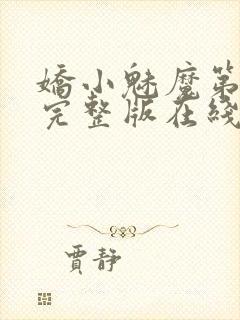 嬌小魅魔第
完整版在綫
賈靜